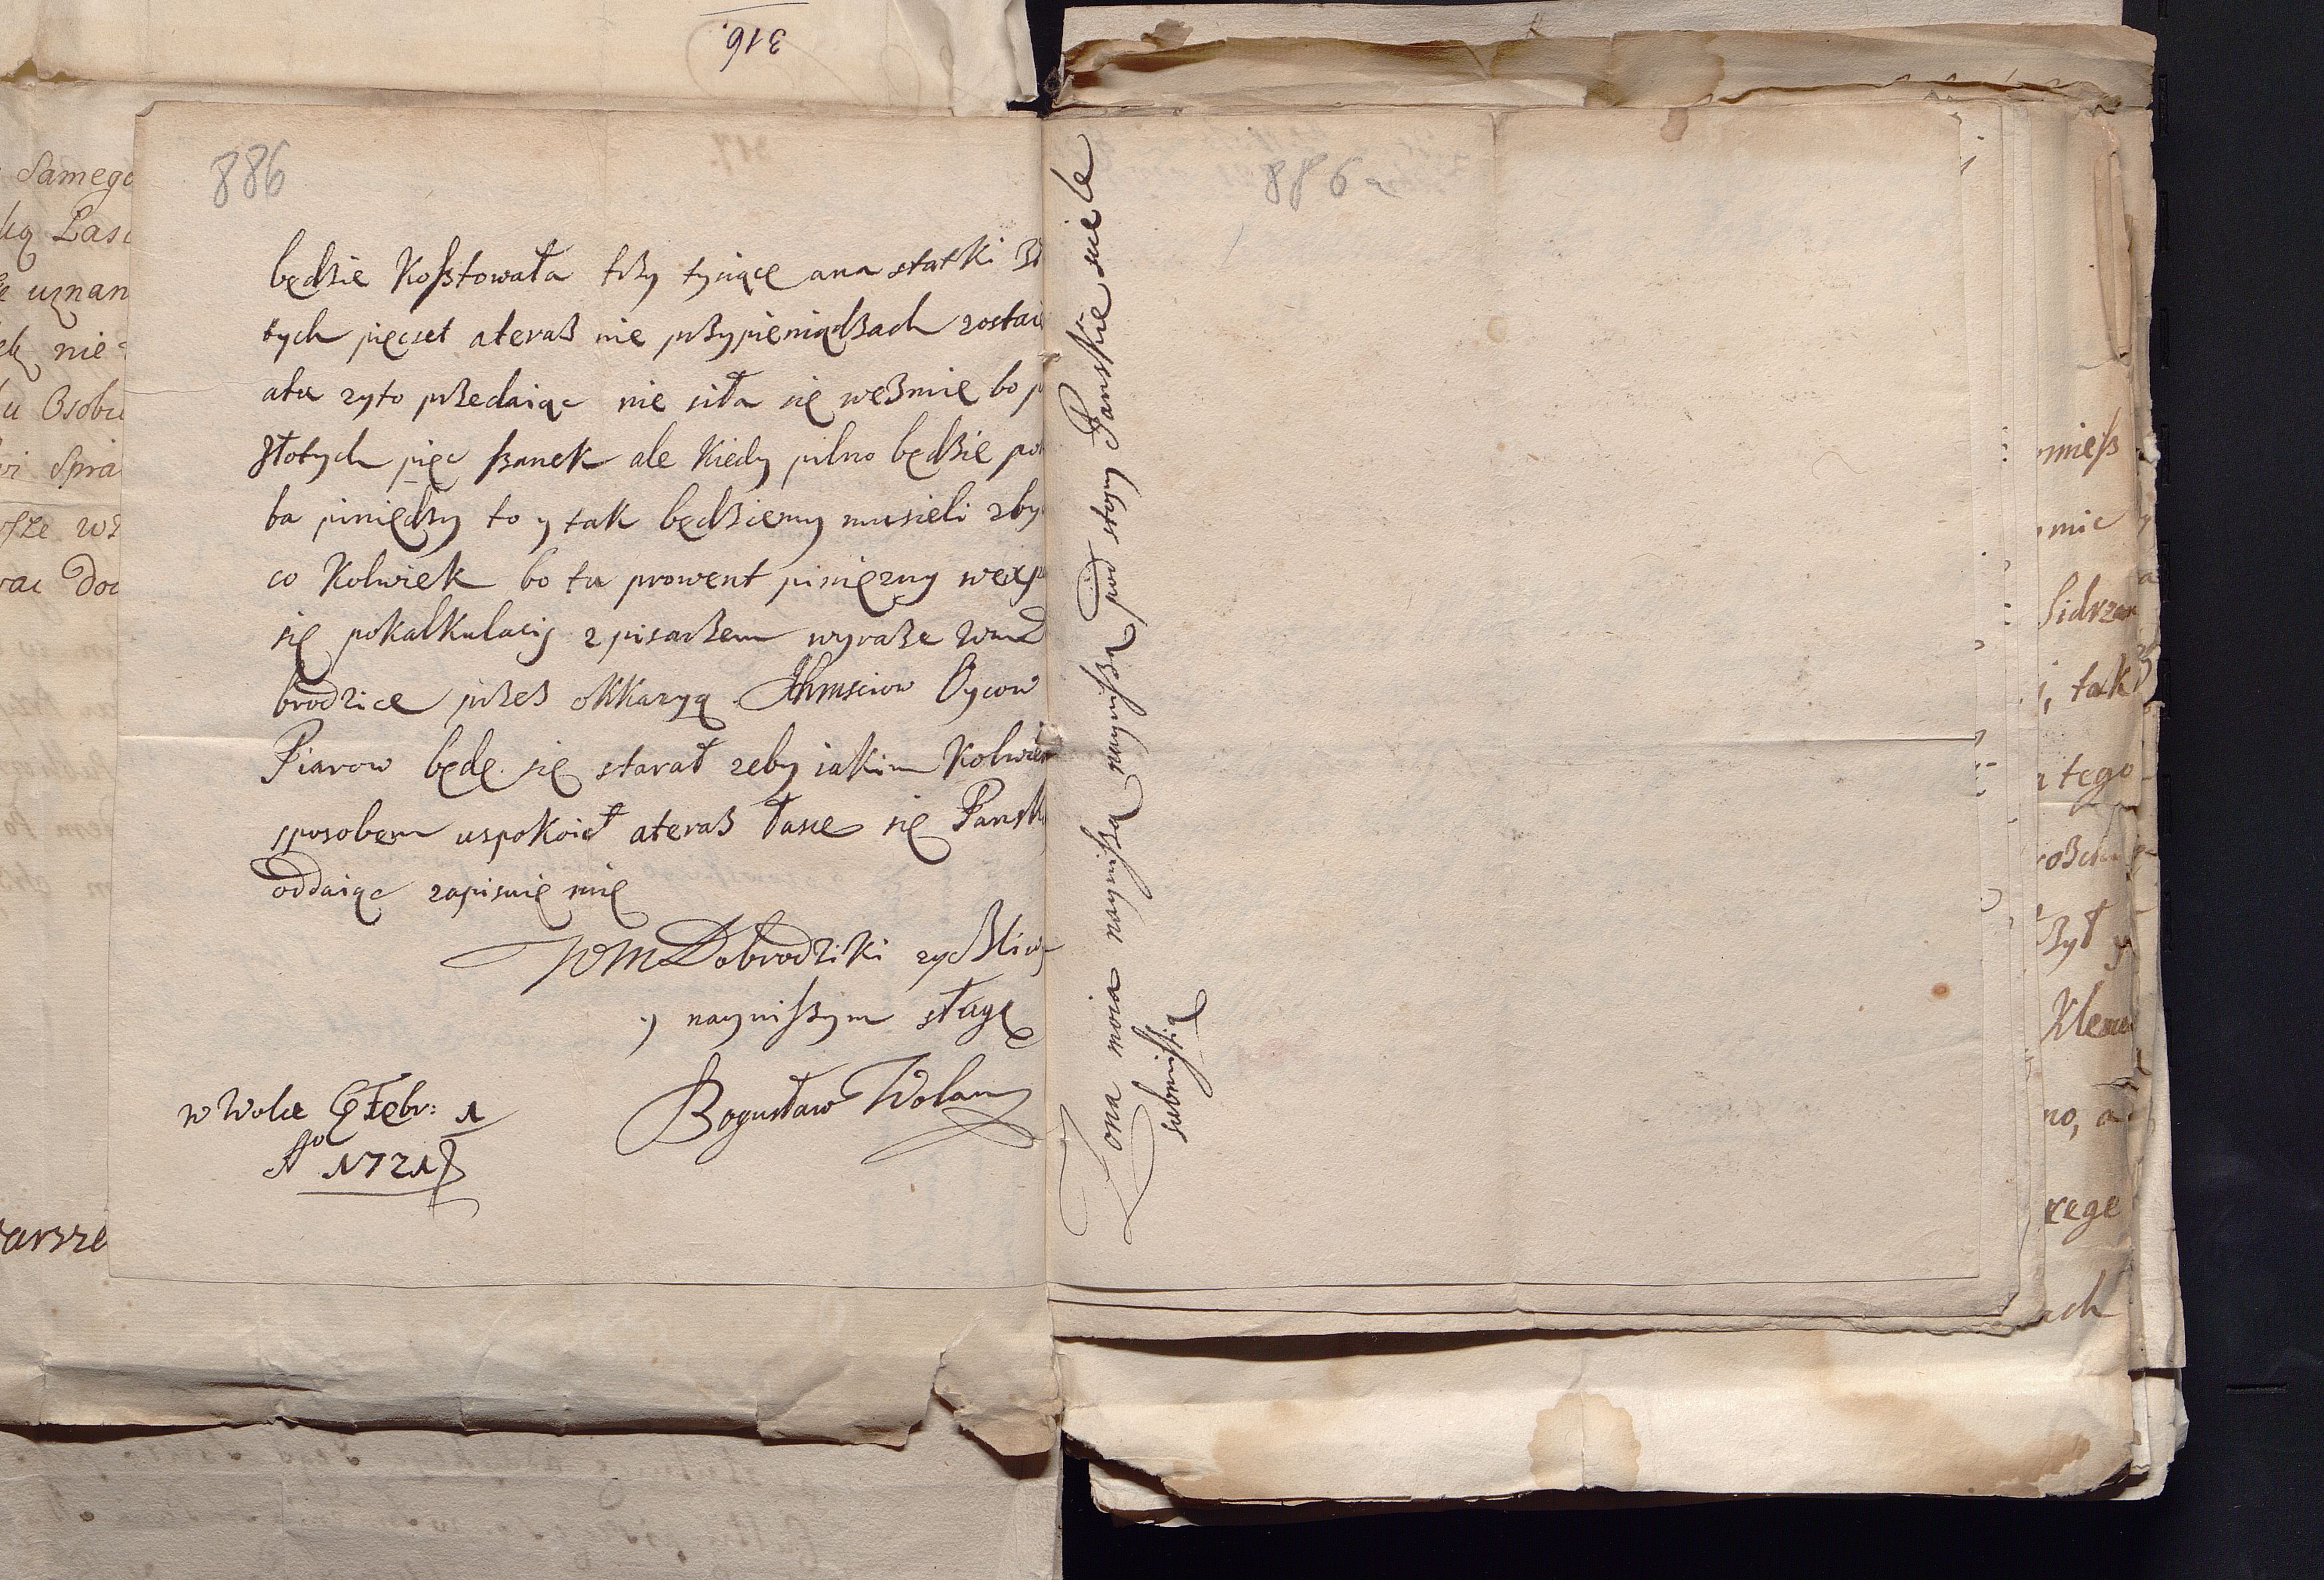 316.
886
będzie kosztowała trzy tysiące ana statki
tych pięcset ateraz nie przypieniądzach zostaie
atu zyto przedaiąc nie siła się wezmie bo
złotych pięc szanek ale kiedy pilno będzie po
ba piniędzy to y tak będziemy musieli zby
co kolwiek bo tu prowent pinięzny wexp
się pokalkulacij z pisarzem wyraze WmD
brodzice przez okkazyą Ichmsciow Oycow
Piarow będę się starał zeby iakim kolwiek
sposobem uspokoic ateraz łasce się Pansk
oddaiąc zapisuię mię
WMDobrodziki zyczliw
y naynizszym sługą
Bogusław Wolan
w Wolce Febr: 1
Ao 1721
886a
Zona moia nayniszą nayniszą pod stopy Panskie sciele
submissią
Samego
uznan
nie
Osobu
Spra
miesz
mie
Sidrzan
, tak
tego
Klem
no, a
rege
ach